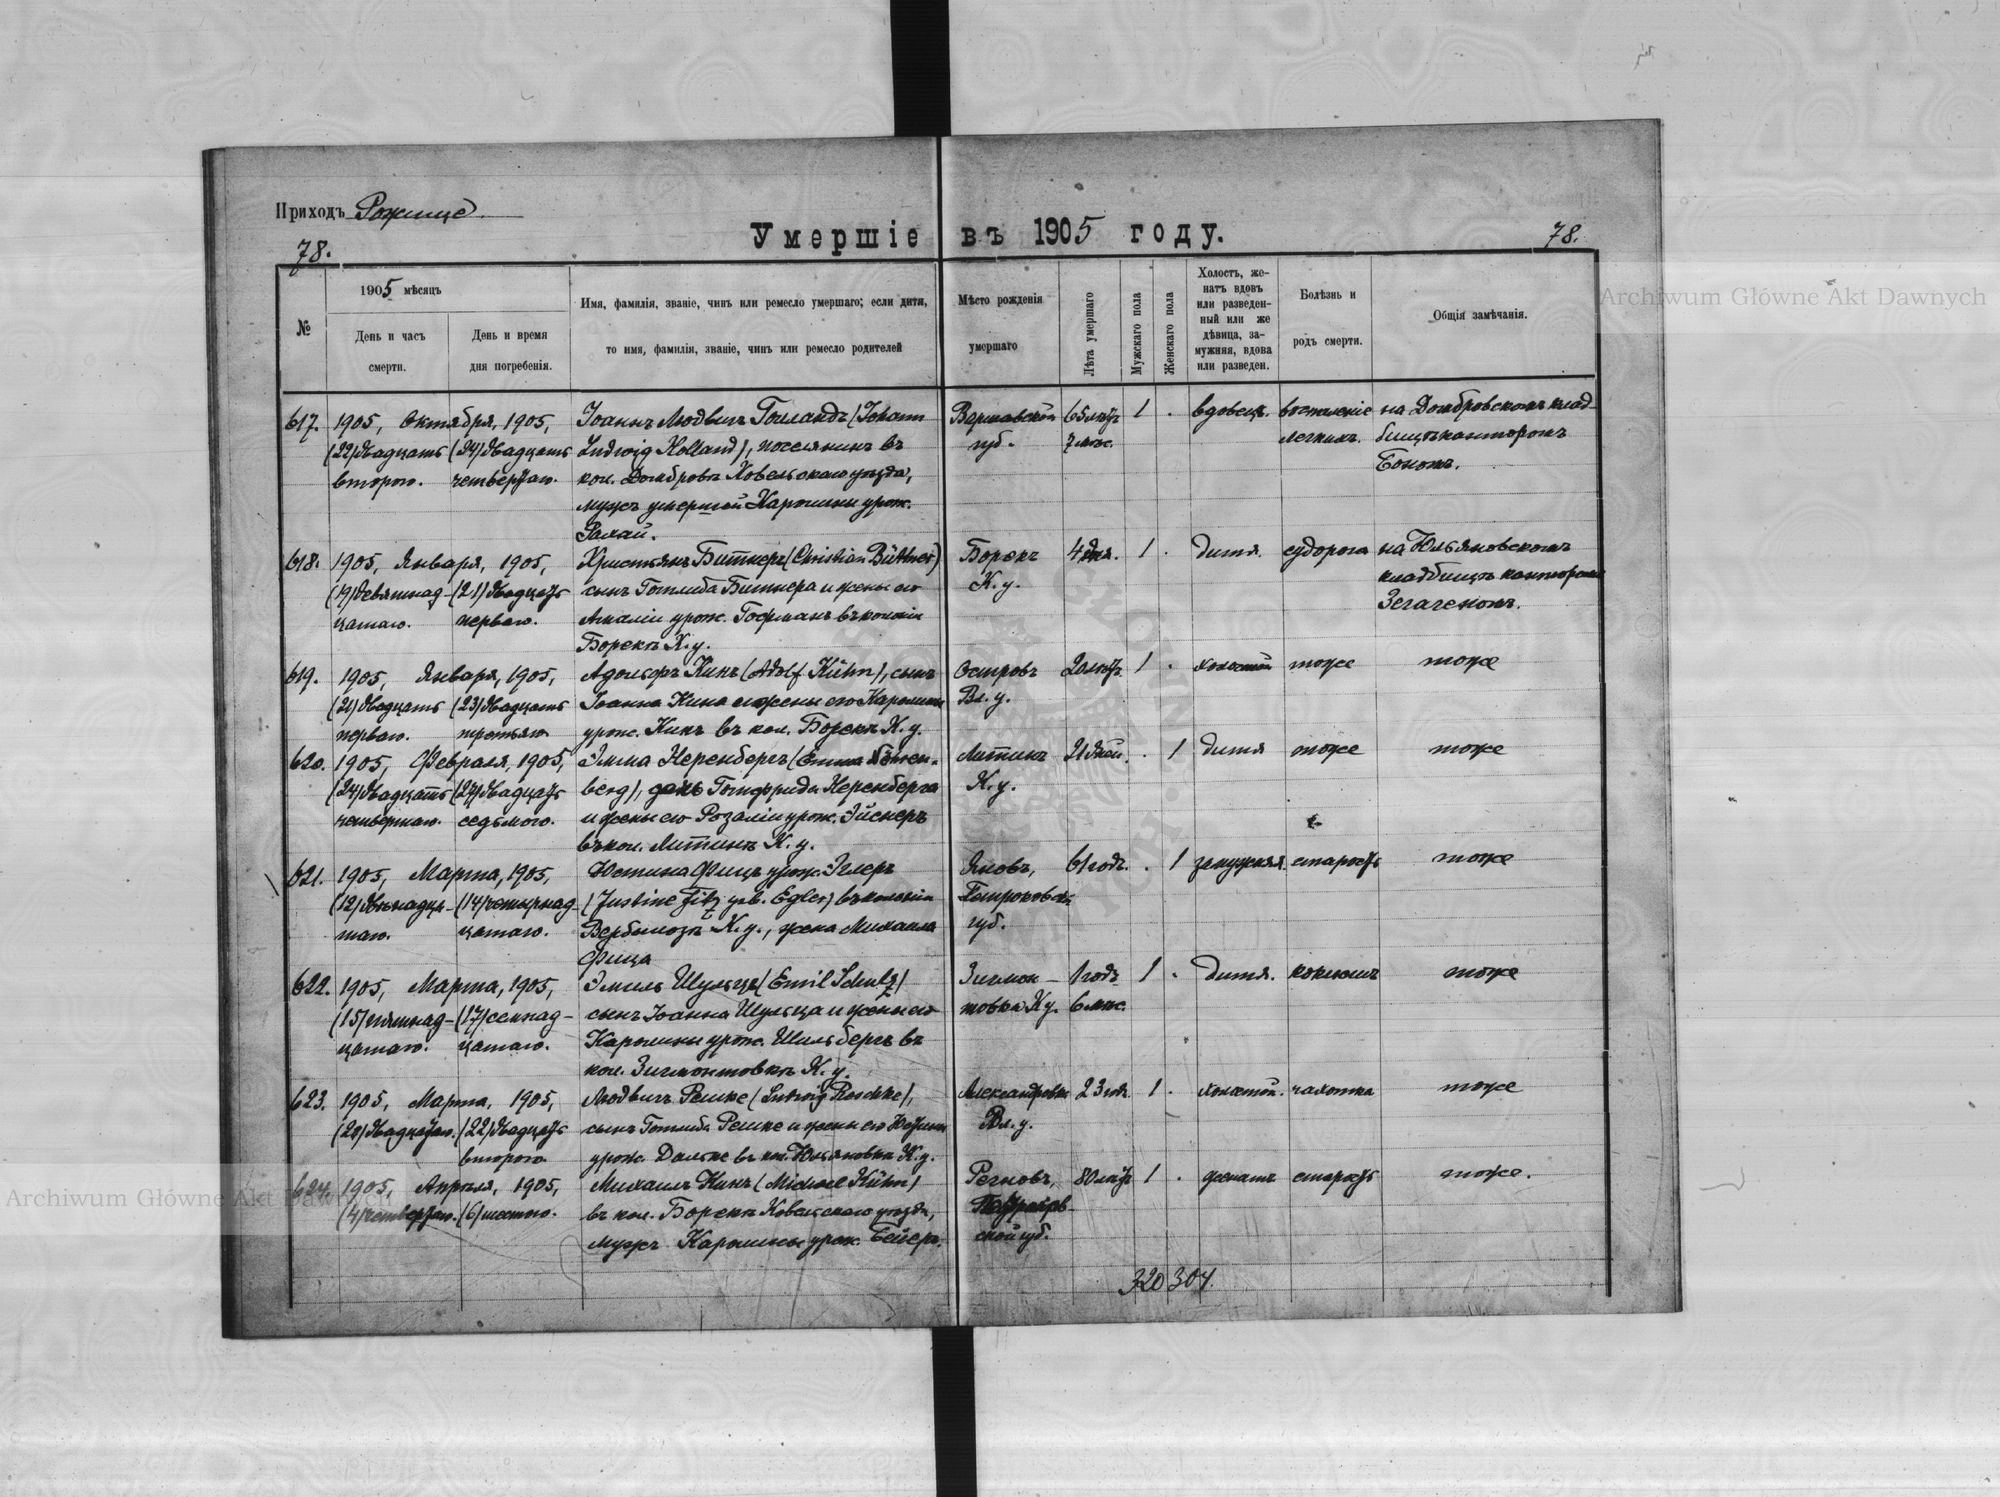 Приходъ Рожище.
Умершіе въ 1905 году.
78.
78.
№
1905 мѣсяцъ
День и часъ
смерти.
День и время
дня погребенія.
Имя, фамилія, званіе, чинъ или ремесло умершаго; если дитя,
то имя, фамилія, званіе, чинъ или ремесло родителей
Мѣсто рожденія
умершаго
Лѣта умершаго
Мужскаго пола
Женскаго пола
Холостъ, же-
натъ вдовъ
или разведен-
ный или же
дѣвица, за-
мужняя, вдова
или разведен.
Болѣзнь и
родъ смерти.
Общія замѣчанія.
617. 1905, Октября, 1905, Іоаннъ Людвигъ Голландъ (Johann Варшавской 65 лѣтъ 1 . вдовецъ. воспаленіе на Домбровскомъ клад-
(22) двадцать (24) двадцать Ludwig Holland), поселянинъ въ губ. 7 мѣс. легкихъ. бищѣ канторомъ
второго. четвертаго. кол. Домбровѣ Ковельскаго уѣзда, Бономъ.
мужъ умершей Каролины урож.
618. 1905, Января, 1905, Христьянъ Битнеръ (Christian Büttner) Борекъ 4 дня. 1 . дитя. судорога на Юльяновскомъ
(19) девятнад- (21) двадцать сынъ Готлиба Битнера и жены его К. у. кладбищѣ канторомъ
цатаго. перваго. Амаліи урож. Гофманъ въ колоніи
Борекъ К. у.
619. 1905, Января, 1905, Адольфъ Кинъ (Adolf Kühn), сынъ Островъ 20 лѣтъ. 1 . холостой тоже тоже
(21) двадцать (23) двадцать Іоанна Кина и жены его Каролины Вл. у.
перваго. третьяго урож. Кинъ въ кол. Борекъ К. у.
620. 1905, Февраля, 1905, Эмма Керенбергъ (Emma Литинъ 21 дней. . 1 дитя тоже тоже
(24) двадцать (27) двадцать berg), дочь Готфрида Керенберга К. у.
четвертаго. седьмого. и жены его Розаліи урож. Эйснеръ
въ кол. Литинъ К. у.
621. 1905, Марта, 1905, Юстина Фицъ урож. Эглеръ Яновъ, 61 годъ. . 1 замужняя. старость тоже
(12) двѣнадца- (14) четырнад- (Justine Fitz geb. Egler) въ колоніи Петроковск.
таго. цатаго. Вербполозъ К. у., жена Михаила губ.
Фица
622. 1905, Марта, 1905, Эмиль Шульцъ (Emil Schulz) Зигмон- 1 годъ 1 . дитя. коклюшъ тоже
(15) пятнад- (17) семнад- сынъ Іоанна Шульца и жены его товка К у. 6 мѣс.
цатаго. цатаго. Каролины урож. Шильбергъ въ
кол. Зигмонтовкѣ К. у.
623. 1905, Марта, 1905, Людвигъ Решке (Ludwig Roschke), Александровка 23 год. 1 . холостой. чахотка тоже
(20) двадцатаго. (22) двадцать сынъ Готлиба Решке и жены его Юстины Вл. у.
второго урож. Дальке въ кол. Юльяновка К. у.
624. 1905, Апрѣля, 1905, Михаилъ Кинъ (Michael Kühn) Регновъ, 80 лѣтъ 1 . женатъ старость тоже.
(4) четвертаго. (6) шестого. въ кол. Борекъ Ковельскаго уѣзда, Петроков-
мужъ Каролины урож. Бейеръ. ской губ.
320 304.
Archiwum Główne Akt Dawnych
Archiwum Główne Akt Dawnych